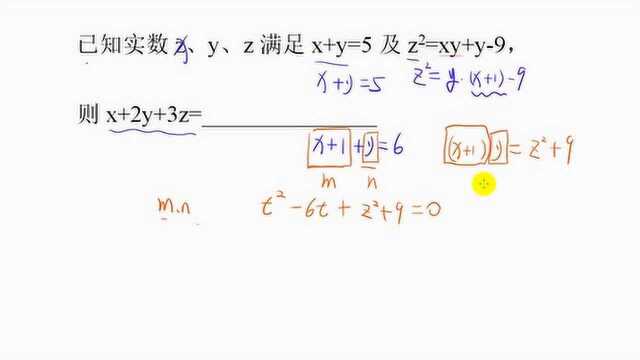 已知实数 x、y、z 满足 x+y=5 及 z²=xy+y-9，
x+y=5 z²=y·(x+1)-9
则 x+2y+3z=____________
x+1+y=6 (x+1) y = z²+9
m n
m.n t²-6t+z²+9=0